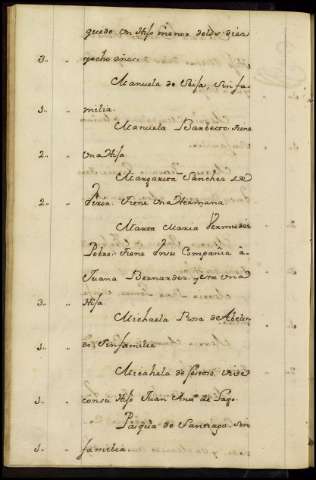 quedo un Hijo menor de
3.. .. y ocho años.
Manuela de Sin fa
1.. .. milia.
Manuela Barbeito tiene
2.. .. Una Hija
Margarita Sanches de
2.. .. tiene Una Hermana
Maria Maria Bermudes
Pobre tiene En su Compañia á
Juana Bernardes, y esta Una
3.. .. Hija
Michaela Rosa de
1.. .. Sin familia
Micahela de Vive
1.. .. con su Hijo Juan Anto. de
Pasqua de Santiago, Sin
1.. .. familia.